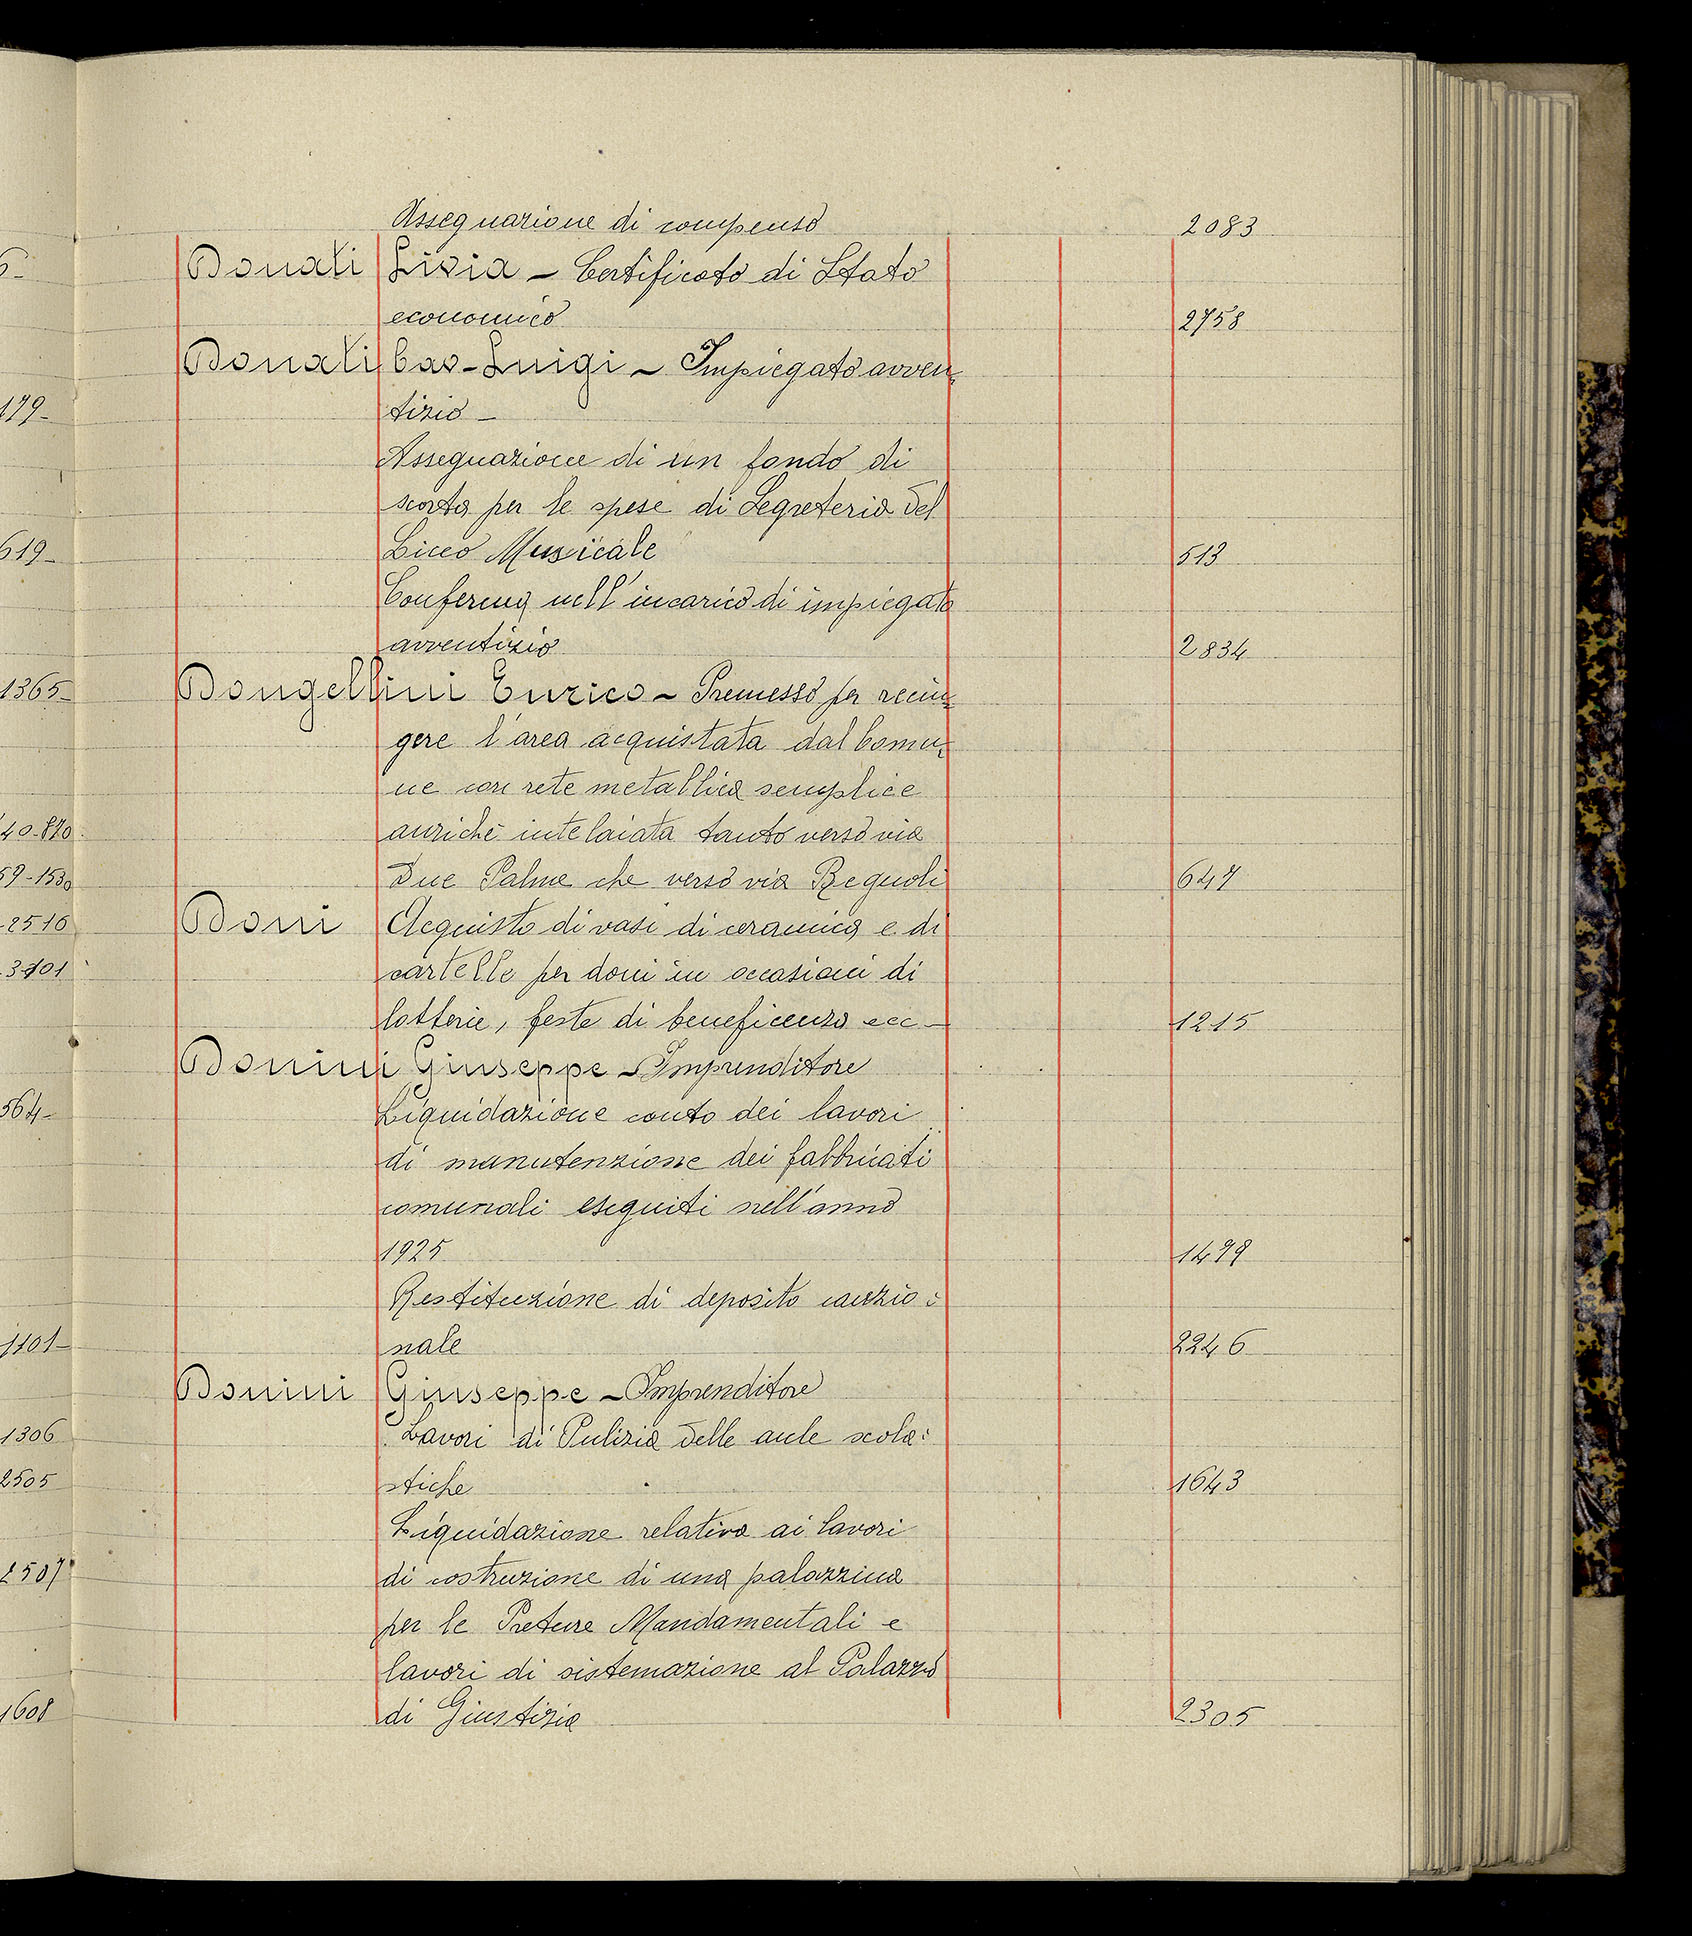 Assegnazione di compenso 2083
Donati Livia - Certificato di Stato
economico 2758
Donati Cav-Luigi - Impiegato avven-
tizio -
Assegnazione di un fondo di
scorta per le spese di Segreteria del
Liceo Musicale 513
Conferma nell'incarico di impiegato
avventizio 2834
Dongellini Enrico - Premesso per recin=
gere l'area acquistata dal Comu-
ne con rete metallica semplice
anzichè intelaiata tanto verso via
Due Palme che verso via Regnoli 647
Doni Acquisto di vasi di ceramica e di
cartelle per doni in occasioni di
lotterie, feste di beneficenza ecc - 1215
Donini Giuseppe - Imprenditore
Liquidazione conto dei lavori
di manutenzione dei fabbricati
comunali eseguiti nell'anno
1925 1499
Restituzione di deposito cauzio=
nale 2246
Donini Giuseppe - Imprenditore
Lavori di Pulizia delle aule scola=
stiche 1643
Liquidazione relativa ai lavori
di costruzione di una palazzina
per le Preture Mandamentali e
lavori di sistemazione al Palazzo
di Giustizia 2305
179-
619-
1365-
40-870
59-1530
2516
3101
564-
1101-
1306
2505
2507
1608